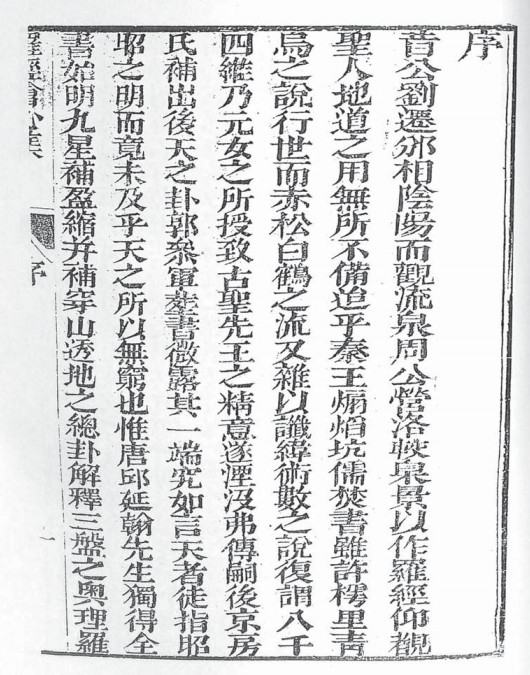 序
昔公劉遷邠相陰陽而觀流泉周公營洛較臬景以作羅經仰觀
聖人地道之用無所不備迨乎秦王煽焰坑儒焚書雖許樗里青
烏之說行世而赤松白鶴之流又雜以讖緯術數之說復謂八千
四維乃元女之所授致古聖先王之精意遂湮沒弗傳嗣後京房
氏補出後天之卦郭參軍葬書微露其一端究如言天者徒指昭
昭之明而竟未及乎天之所以無窮也惟唐邱延翰先生獨得全
書始明九星補盈縮并補穿山透地之總卦解釋三盤之奧理羅
羅經會心集
序
一